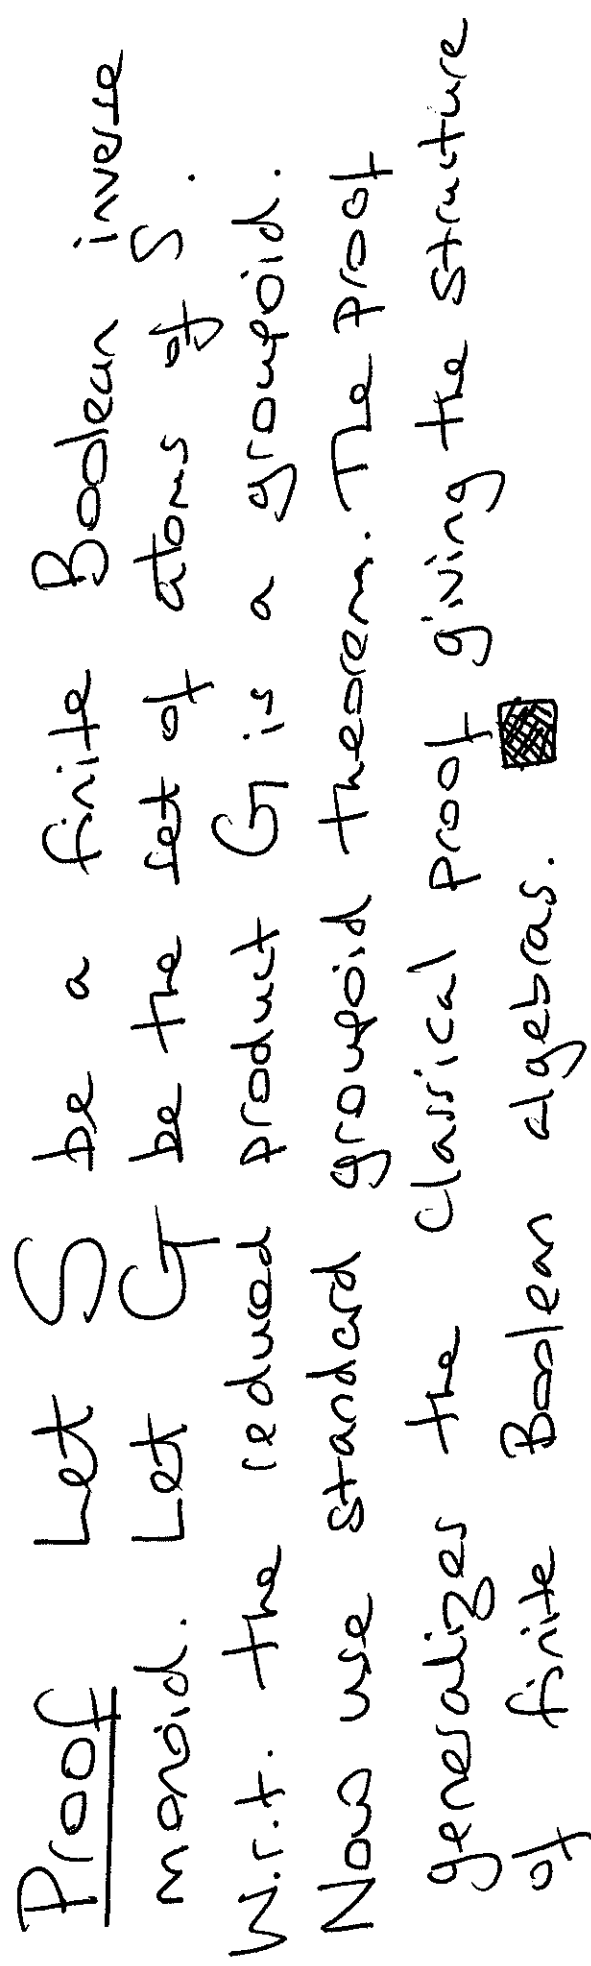 Proof Let S be a finite Boolean inverse
monoid. Let G be the set of atoms of S.
W.r.t. the reduced product G is a groupoid.
Now use standard groupoid theorem. The proof
generalizes the classical proof giving the structure
of finite Boolean algebras.